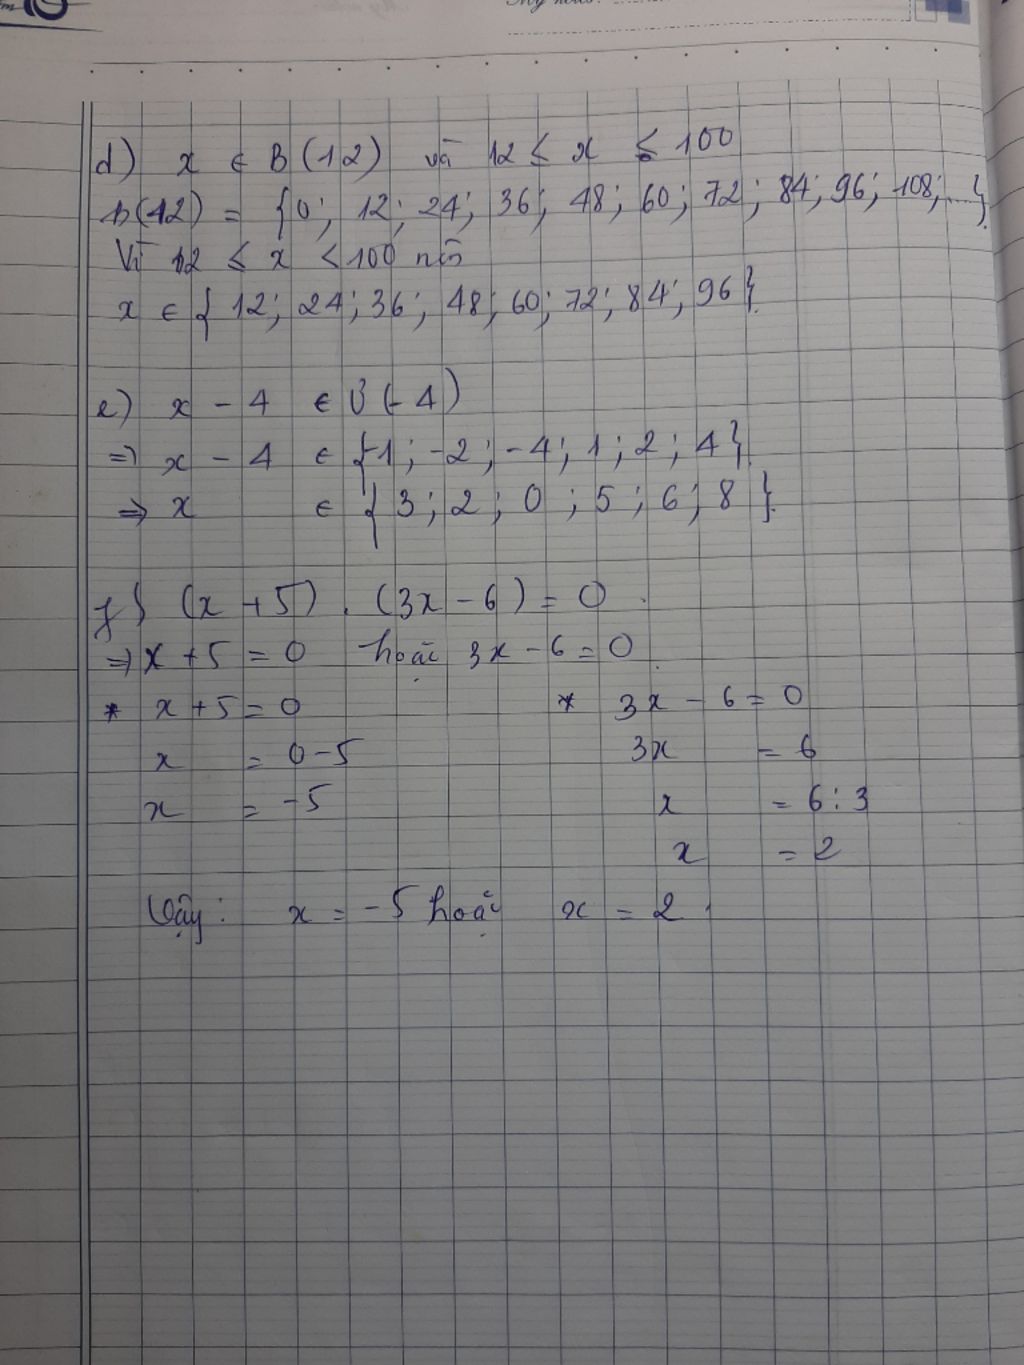 d) x ∈ B(12) và 12 ≤ x ≤ 100
B(12) = {0; 12; 24; 36; 48; 60; 72; 84; 96; 108; ...}
Vì 12 ≤ x < 100 nên
x ∈ {12; 24; 36; 48; 60; 72; 84; 96}.
e) x - 4 ∈ Ư(-4)
=> x - 4 ∈ {-1; -2; -4; 1; 2; 4}.
=> x ∈ {3; 2; 0; 5; 6; 8}.
f) (x + 5) . (3x - 6) = 0
=> x + 5 = 0 hoặc 3x - 6 = 0.
* x + 5 = 0 * 3x - 6 = 0
x = 0 - 5 3x = 6
x = -5 x = 6 : 3
x = 2
Vậy: x = -5 hoặc x = 2.